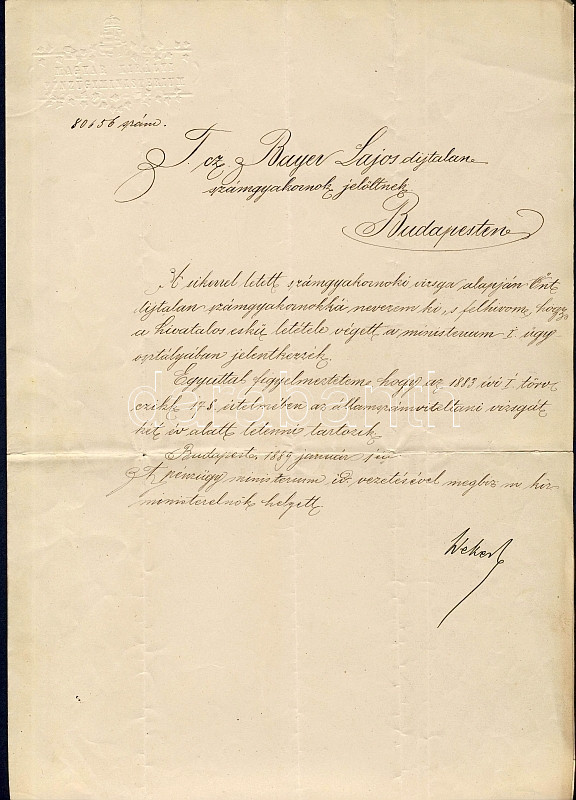 80656 szám.
T. cz. Bayer Lajos dijtalan
számgyakornok jelöltnek
Budapesten
A sikerrel letett számgyakornoki vizsga alapján Önt
dijtalan számgyakornokká nevezem ki, s felhivom, hogy
a hivatalos eskü letétele végett a ministerium I. ügy
osztályában jelentkezzék.
Egyuttal figyelmeztetem hogy az 1883 évi I. törv
czikk 17§. értelmében az államszámviteltani vizsgát
két év alatt letenni tartozik.
Budapest 1889 január
A pénzügyministerium id. vezetésével megbizott m. kir.
ministerelnök helyett
Wekerle
darabanth